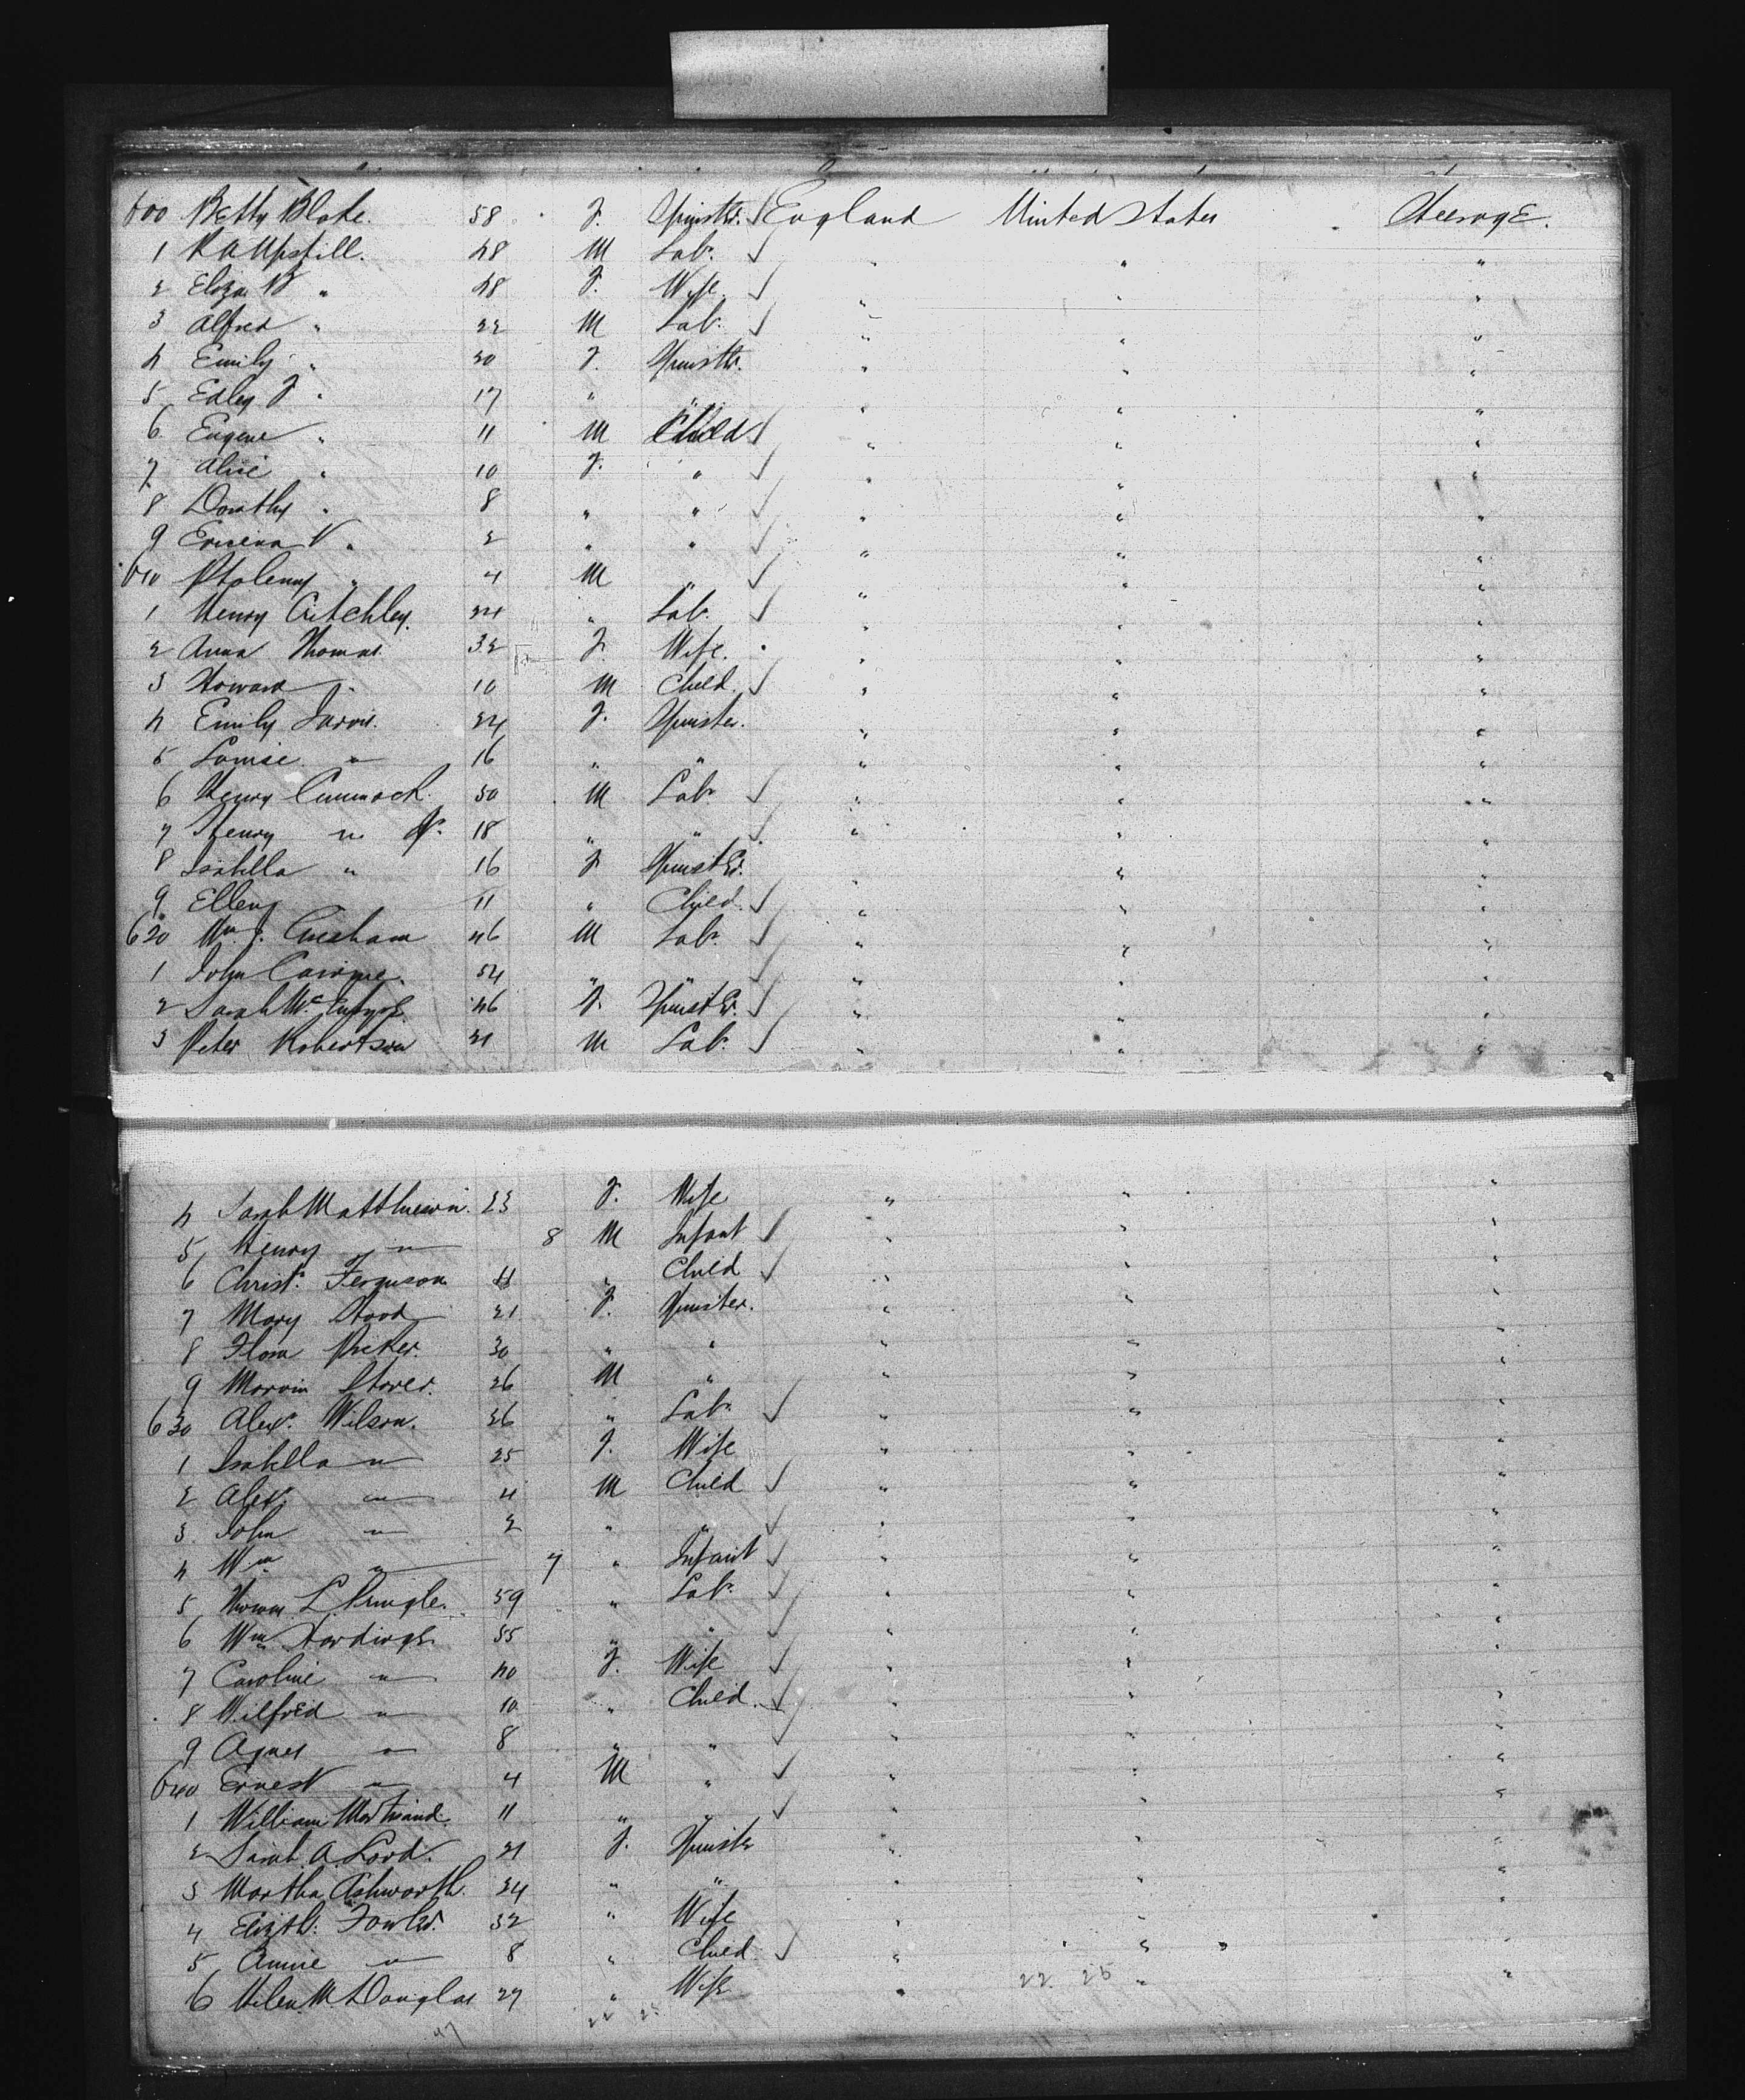 600 Betty Blake. 58 F. Spinster. ✓ England United States Steerage.
1 R A Upstill. 48 M Lab. ✓ " " "
2 Eliza B " 48 F. Wife ✓ " " "
3 Alfred " 22 M Lab. ✓ " " "
4 Emily " 20 F. Spinster. " " "
5 Edley F " 17 " " " " "
6 Eugene " 11 M Child ✓ " " "
7 Alice " 10 F. " ✓ " " "
8 Dorothy " 8 " " ✓ " " "
9 V " 2 " " ✓ " " "
610 Ptolemy " 4 M " ✓ " " "
1 Henry Critchley. 24 " Lab. ✓ " " "
2 Anna Thomas. 32 F. Wife. " " "
3 Howard " 10 M Child. ✓ " " "
4 Emily Jarvis. 24 F. Spinster. " " "
5 Louise " 16 " " " " "
6 Henry Cummock. 50 M Lab. ✓ " " "
7 Henry " Jr. 18 " " ✓ " " "
8 Isabella " 16 F Spinster. " " "
9 Ellen " 11 " Child. ✓ " " "
620 Wm J. 46 M Lab. ✓ " " "
1 John 54 " " ✓ " " "
2 Sarah Mc 46 F. Spinster. ✓ " " "
3 Peter Robertson 21 M Lab. ✓ " " "
4 Sarah Matthewson. 23 F. Wife " " "
5 Henry " 8 M Infant ✓ " " "
6 Christ. Ferguson 11 " Child ✓ " " "
7 Mary Hood 21 F. Spinster. " " "
8 Flora 30 " " " " "
9 Storer. 26 M " " " "
630 Alexr. Wilson. 26 " Lab. ✓ " " "
1 Isabella " 25 F. Wife " " "
2 Alexr. " 4 M Child ✓ " " "
3 John " 2 " " ✓ " " "
4 Wm " 7 " Infant ✓ " " "
5 Thomas L. Pringle. 59 " Lab. ✓ " " "
6 Wm Hardinge 55 " " ✓ " " "
7 Caroline " 40 F. Wife ✓ " " "
8 Wilfred " 10 " Child. ✓ " " "
9 Agnes " 8 " " ✓ " " "
640 Ernest " 4 M " ✓ " " "
1 William 11 " " ✓ " " "
2 Sarah A. Lord. 21 F. Spinster " " "
3 Martha Ashworth. 24 " " " " "
4 Elizth. Fowler. 32 " Wife " " "
5 Annie " 8 " Child. ✓ " " "
6 Helen M Douglas 27 " Wife " 22 25 " "
47 22 25